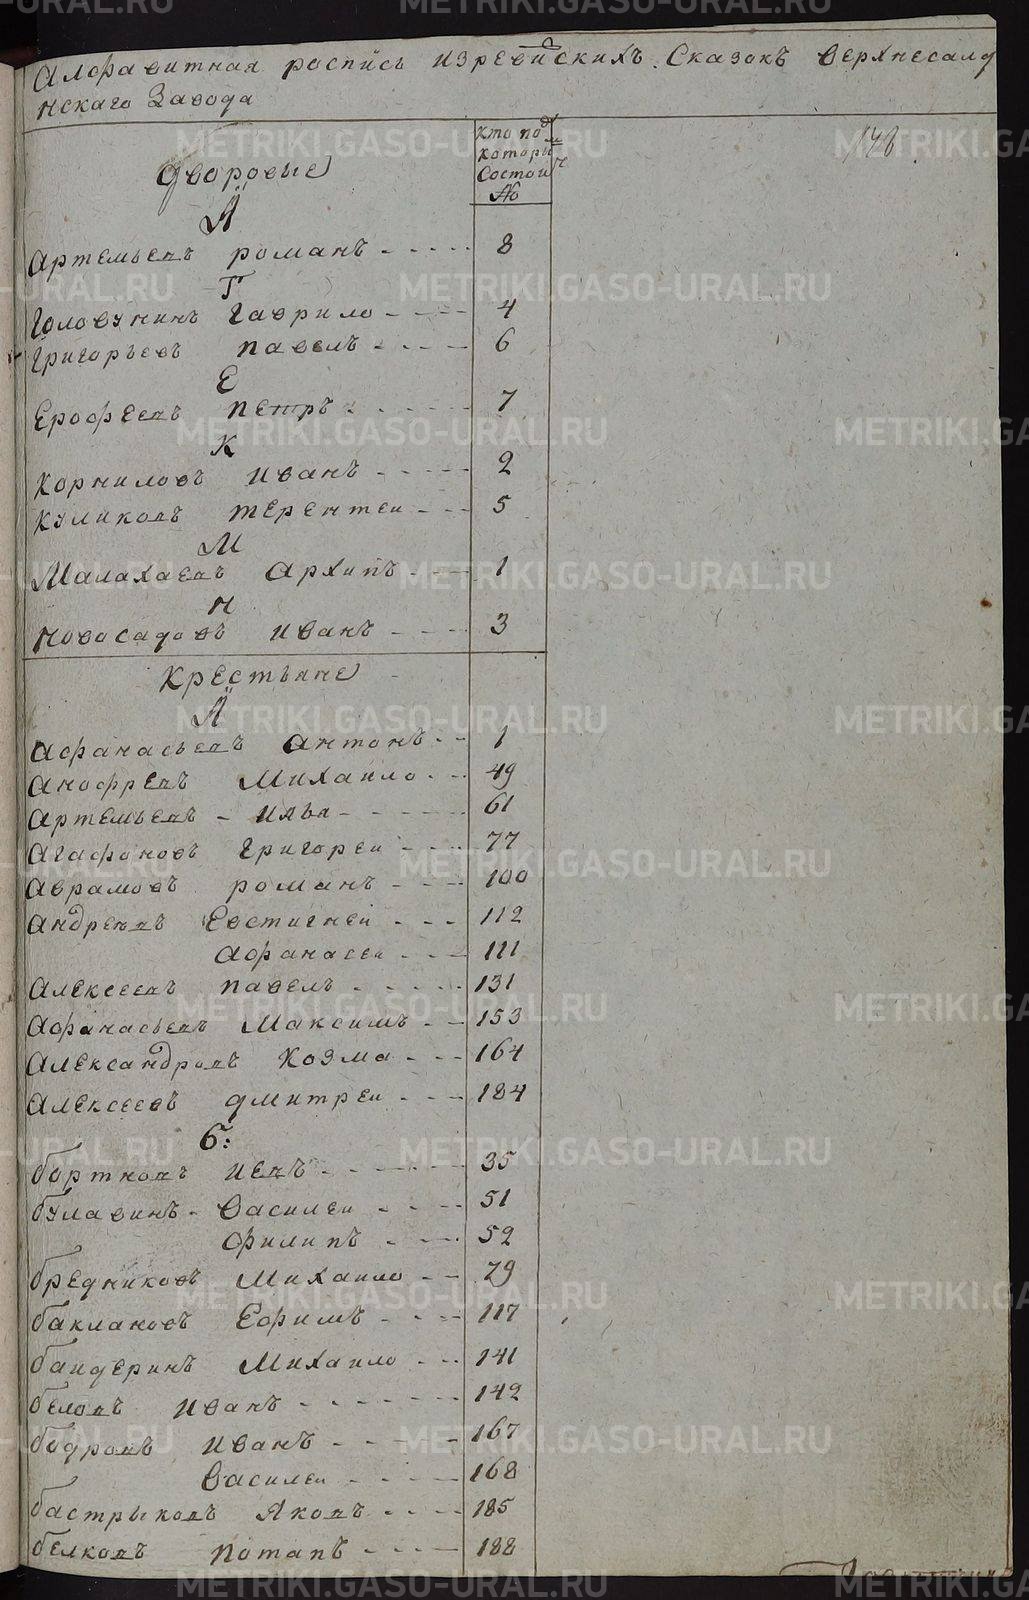 Алфавитная роспись изревискихъ Сказокъ верхнесалд
нскаго Завода
кто под
которы
Состои
№
148
Дворовые
А
Артемьевъ романъ 8
Г
Головунинъ Гаврило 4
Григорьевъ павелъ 6
Е
Ерофеевъ петръ 7
К
Корниловъ иванъ 2
Куликовъ терентеи 5
М
Малахаевъ Архипъ 1
Н
Новосадовъ иванъ 3
Крестьяне
А
Афанасьевъ антонъ 1
Анофревъ Михаило 49
Артемьевъ - илья 61
Агафоновъ Григореи 77
Аврамовъ романъ 100
Андреевъ Евстигнеи 112
Афанасеи 111
Алексеевъ павелъ 131
Афанасьевъ Максимъ 153
Александровъ Козма 164
Алексеевъ дмитреи 184
Б:
бортновъ иевъ 35
булавинъ - Василеи 51
Филипъ 52
бредниковъ Михаило 79
баклановъ Ефимъ 117
баидеринъ Михаило 141
беловъ иванъ 142
бодровъ иванъ 167
Василеи 168
бастрыковъ Яковъ 185
белковъ потапъ 188
METRIKI.GASO-URAL.RU